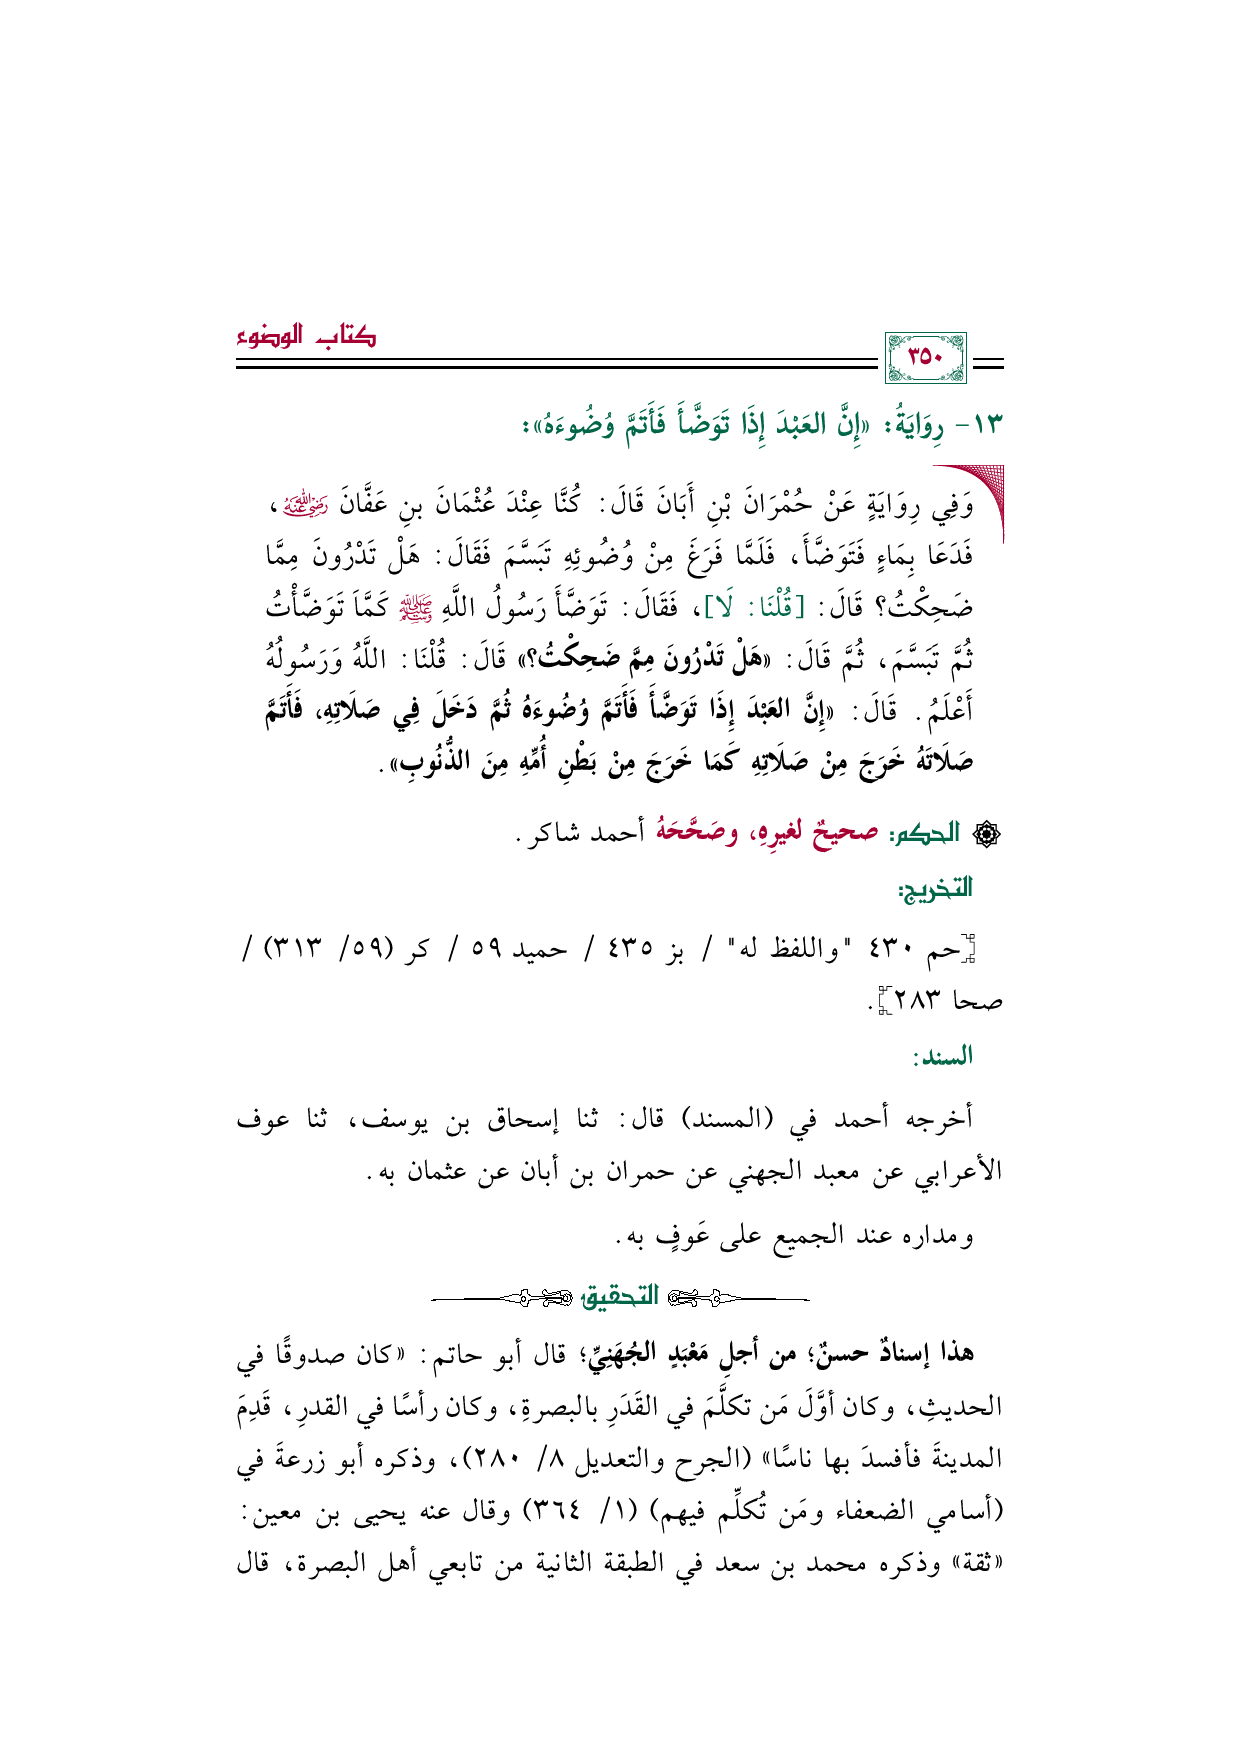 كتاب الوضوء
٣٥٠
١٣- رِوَايَةُ: «إِنَّ العَبْدَ إِذَا تَوَضَّأَ فَأَتَمَّ وُضُوءَهُ»:
وَفِي رِوَايَةٍ عَنْ حُمْرَانَ بْنِ أَبَانَ قَالَ: كُنَّا عِنْدَ عُثْمَانَ بنِ عَفَّانَ رضي الله عنه،
فَدَعَا بِمَاءٍ فَتَوَضَّأَ، فَلَمَّا فَرَغَ مِنْ وُضُوئِهِ تَبَسَّمَ فَقَالَ: هَلْ تَدْرُونَ مِمَّا
ضَحِكْتُ؟ قَالَ: [قُلْنَا: لَا]، فَقَالَ: تَوَضَّأَ رَسُولُ اللَّهِ ﷺ كَمَّاَ تَوَضَّأْتُ
ثُمَّ تَبَسَّمَ، ثُمَّ قَالَ: «هَلْ تَدْرُونَ مِمَّ ضَحِكْتُ؟» قَالَ: قُلْنَا: اللَّهُ وَرَسُولُهُ
أَعْلَمُ. قَالَ: «إِنَّ العَبْدَ إِذَا تَوَضَّأَ فَأَتَمَّ وُضُوءَهُ ثُمَّ دَخَلَ فِي صَلَاتِهِ، فَأَتَمَّ
صَلَاتَهُ خَرَجَ مِنْ صَلَاتِهِ كَمَا خَرَجَ مِنْ بَطْنِ أُمِّهِ مِنَ الذُّنُوبِ».
الحكم: صحيحٌ لغيرِهِ، وصَحَّحَهُ أحمد شاكر.
التخريج:
[حم ٤٣٠ "واللفظ له" / بز ٤٣٥ / حميد ٥٩ / كر (٥٩/ ٣١٣) /
صحا ٢٨٣].
السند:
أخرجه أحمد في (المسند) قال: ثنا إسحاق بن يوسف، ثنا عوف
الأعرابي عن معبد الجهني عن حمران بن أبان عن عثمان به.
ومداره عند الجميع على عَوفٍ به.
التحقيق
هذا إسنادٌ حسنٌ؛ من أجلِ مَعْبَدٍ الجُهَنِيِّ؛ قال أبو حاتم: «كان صدوقًا في
الحديثِ، وكان أوَّلَ مَن تكلَّمَ في القَدَرِ بالبصرةِ، وكان رأسًا في القدرِ، قَدِمَ
المدينةَ فأفسدَ بها ناسًا» (الجرح والتعديل ٨/ ٢٨٠)، وذكره أبو زرعةَ في
(أسامي الضعفاء ومَن تُكلِّم فيهم) (١/ ٣٦٤) وقال عنه يحيى بن معين:
«ثقة» وذكره محمد بن سعد في الطبقة الثانية من تابعي أهل البصرة، قال